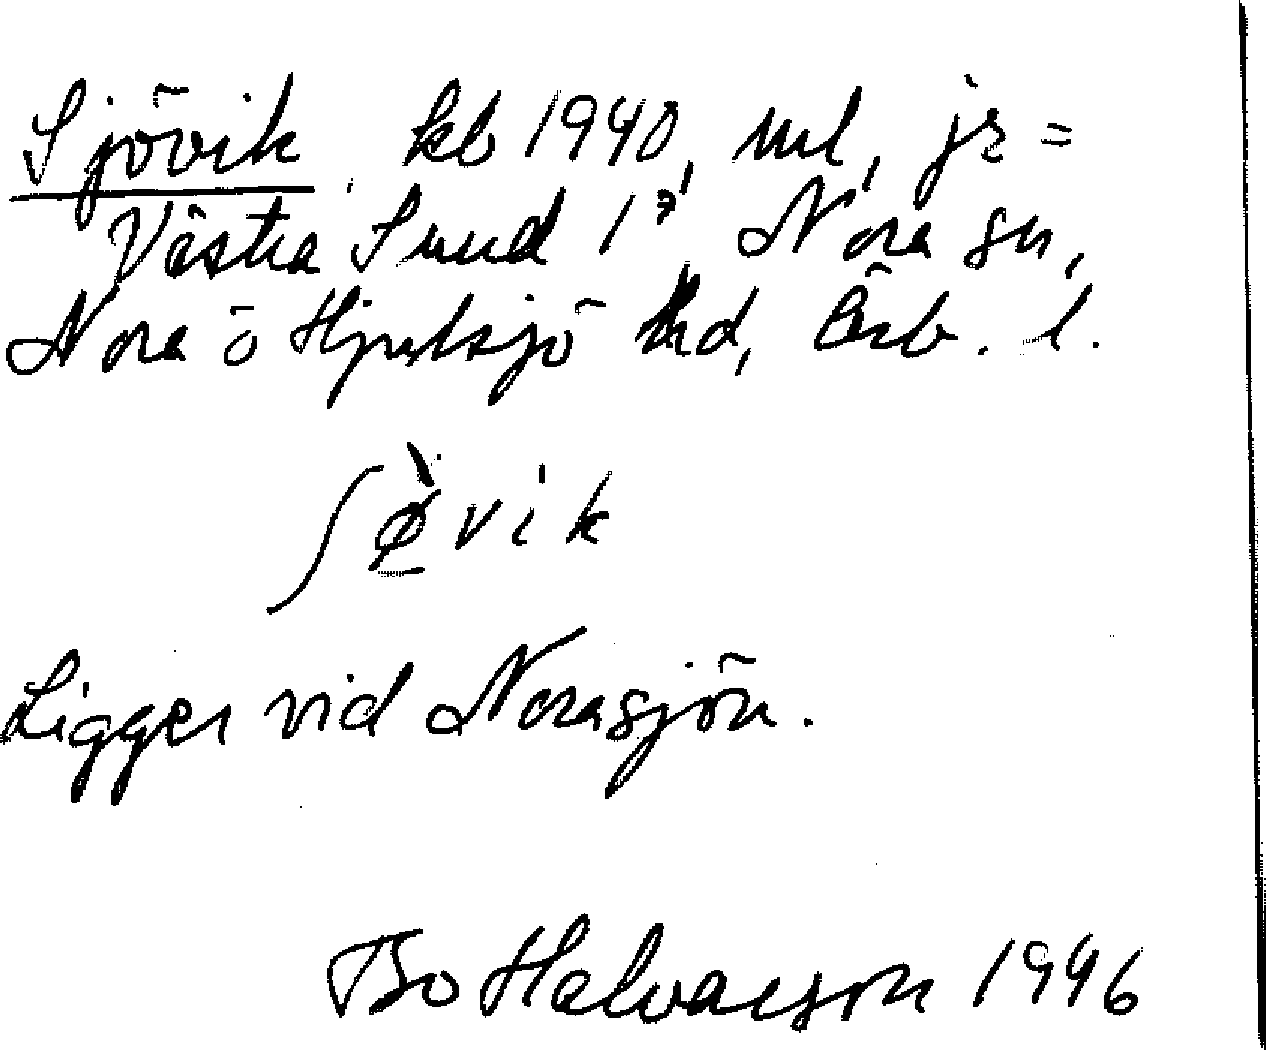 Sjövik, kb 1940, ml, jr =
Västra Sund 1⁷, Nora sn,
Nora o Hjulsjö hd, Örb. l.
ʃø̀vik
Ligger vid Norasjön.
Bo Halvarson 1996